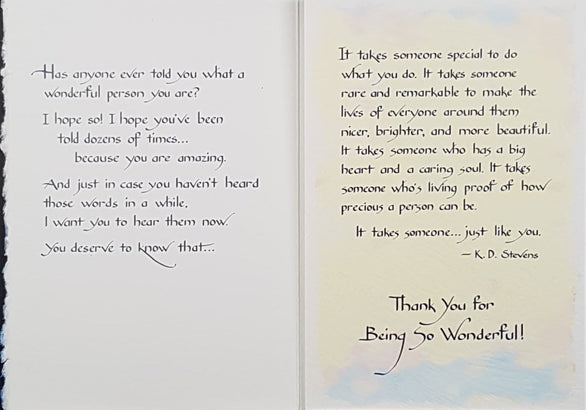 Has anyone ever told you what a
wonderful person you are?
I hope so! I hope you've been
told dozens of times...
because you are amazing.
And just in case you haven't heard
those words in a while,
I want you to hear them now.
You deserve to know that...
It takes someone special to do
what you do. It takes someone
rare and remarkable to make the
lives of everyone around them
nicer, brighter, and more beautiful.
It takes someone who has a big
heart and a caring soul. It takes
someone who's living proof of how
precious a person can be.
It takes someone... just like you.
— K. D. Stevens
Thank You for
Being So Wonderful!